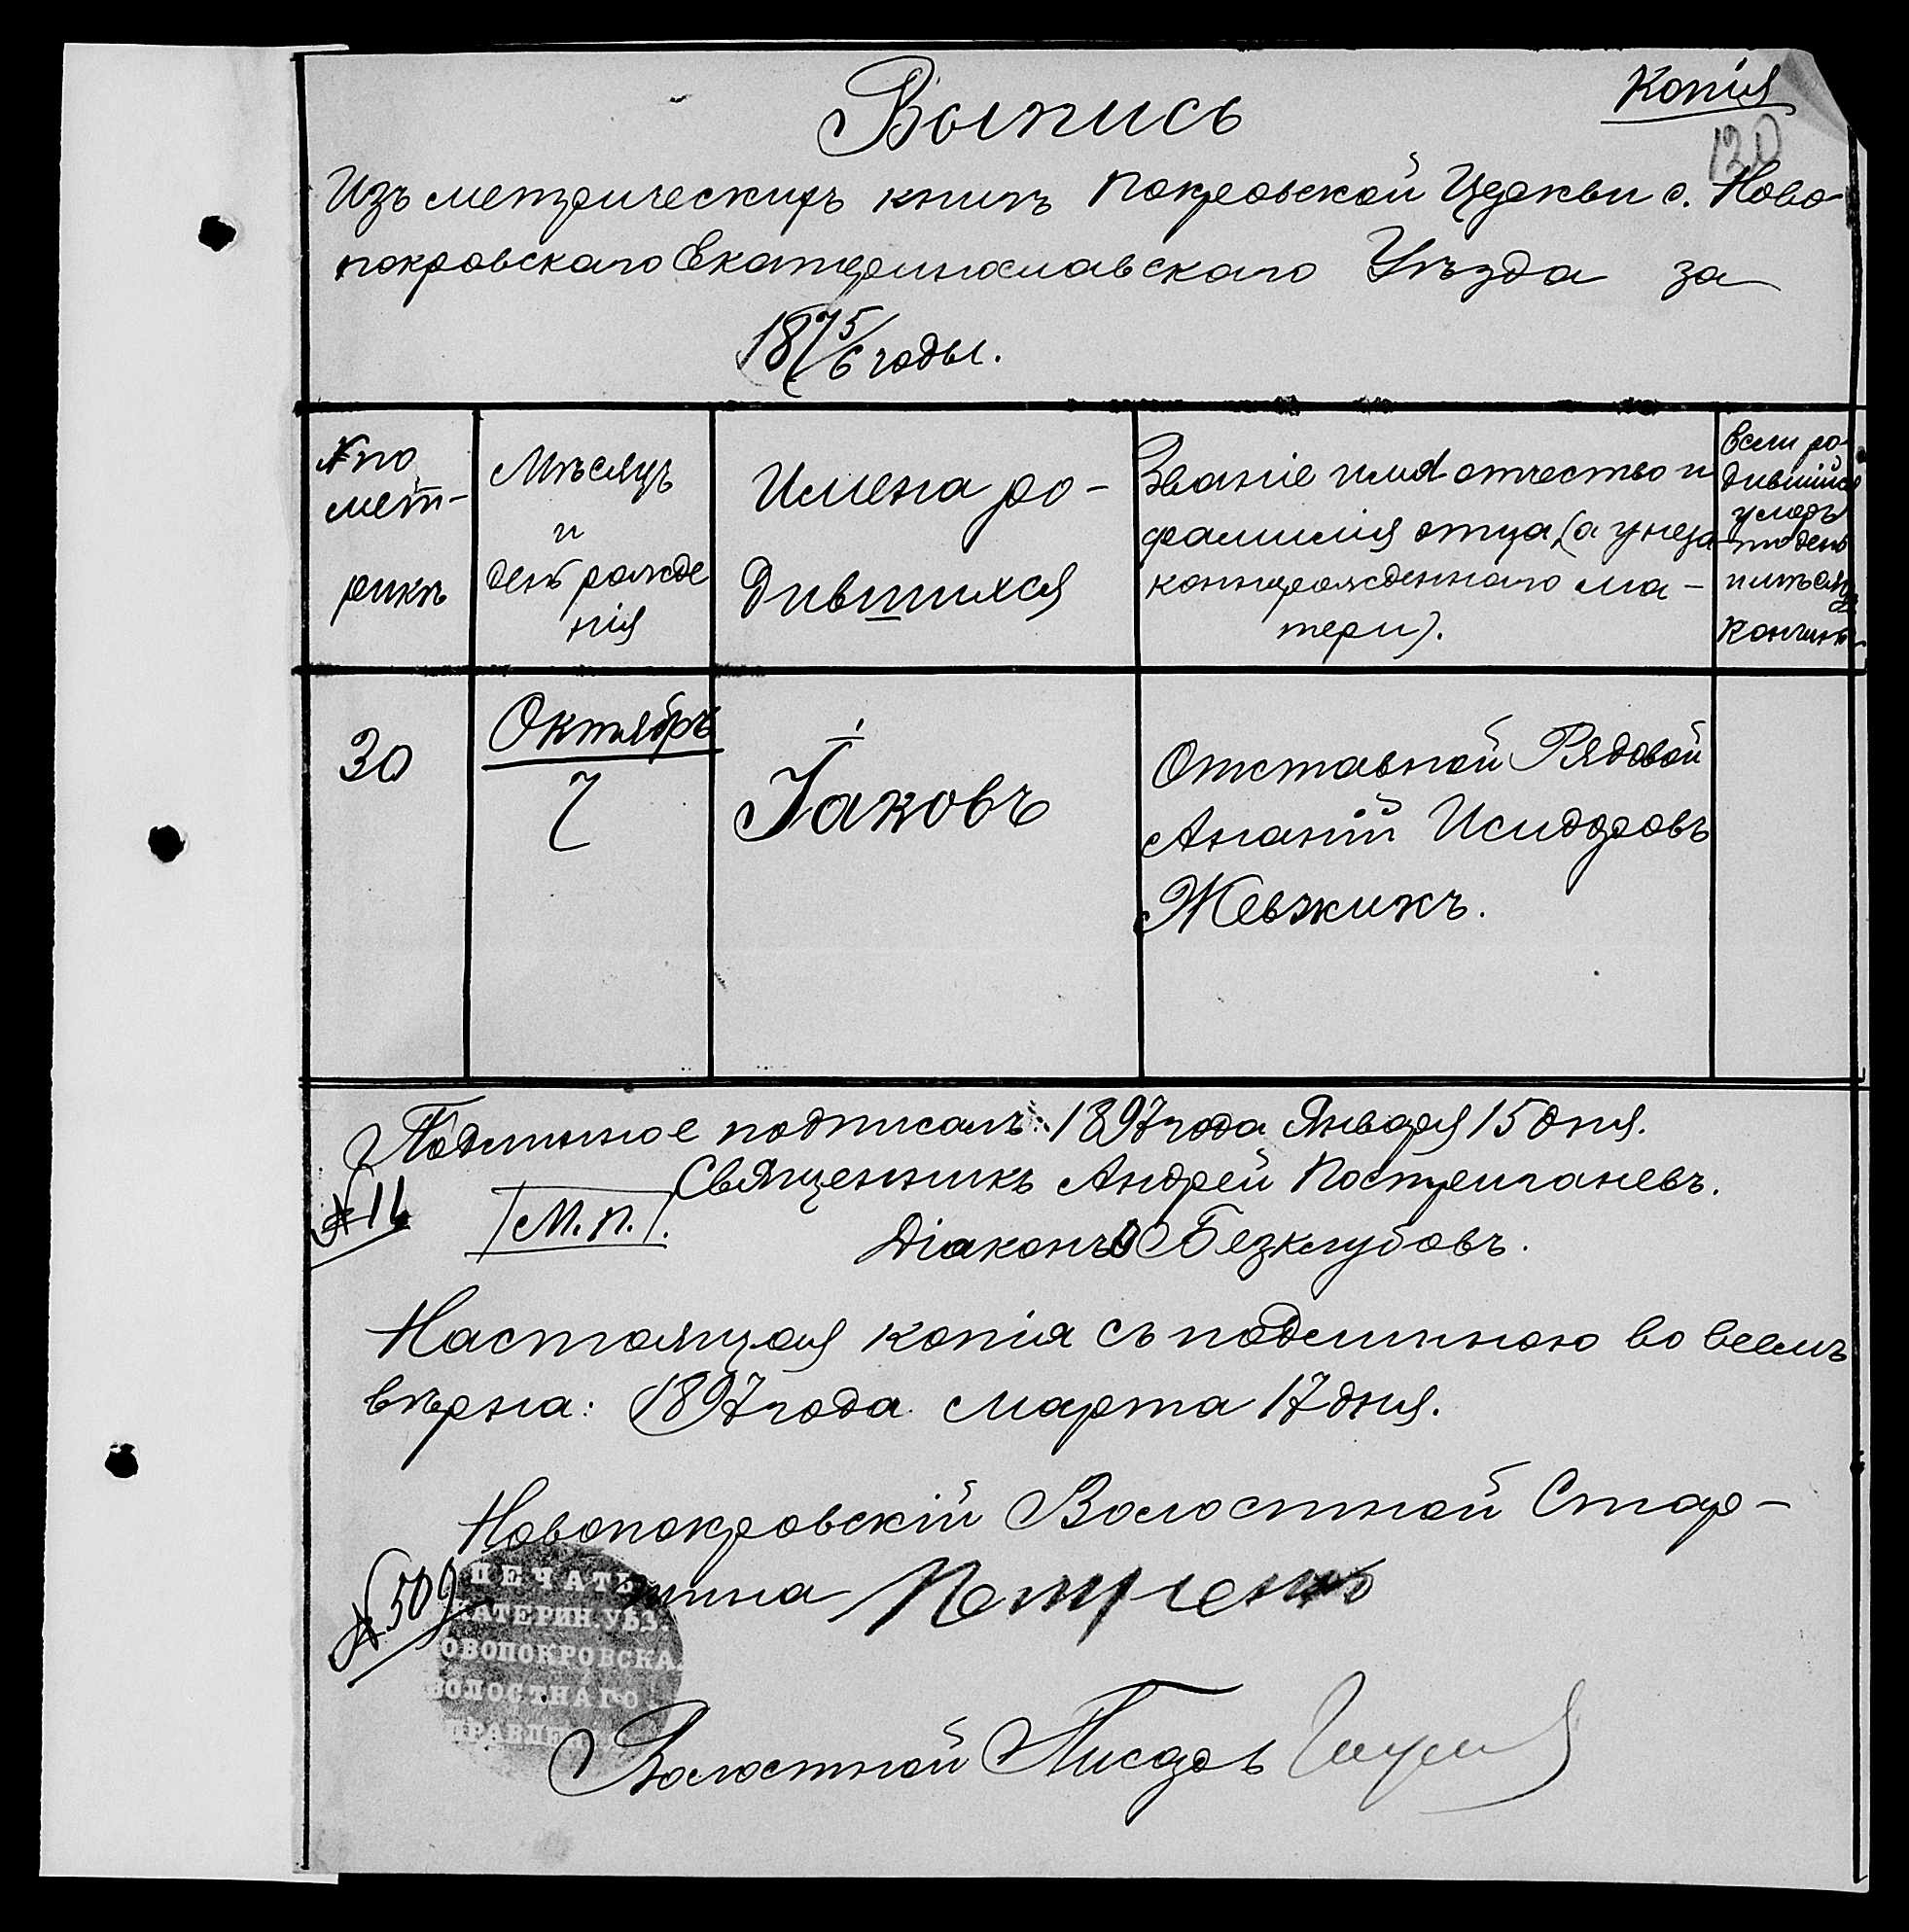 Копія
120
Выпись
Изъ метрическихъ книгъ Покровской Церкви с. Ново-
покровскаго Екатеринославскаго Уѣзда за
187 5/6 годы.
№ по
мет-
рикѣ
Мѣсяцъ
и
день рожде
нія
Имена ро-
дившихся
Званіе имя отчество и
фамилія отца, (а у неза
коннорожденнаго ма-
тери).
Если ро-
дившійся
умеръ
то день
и мѣсяцъ
кончины
30
Октябрь
7
Іаковъ
Отставной Рядовой
Ананій Исидоровъ
Жевжикъ.
Подлинное подписалъ: 1897 года Января 15 дня.
Священникъ Андрей
№ 16
М.П.
Діаконъ Безклубовъ.
Настоящая копія съ подлинною во всемъ
вѣрна: 1897 года марта 17 дня.
Новопокровскій Волостной Стар-
шина Петренко
№ 509
ПЕЧАТЬ
КАТЕРИН. УѢЗ.
ОВОПОКРОВСКА
ВОЛОСТНАГО
ПРАВЛЕН
Волостной Писарь